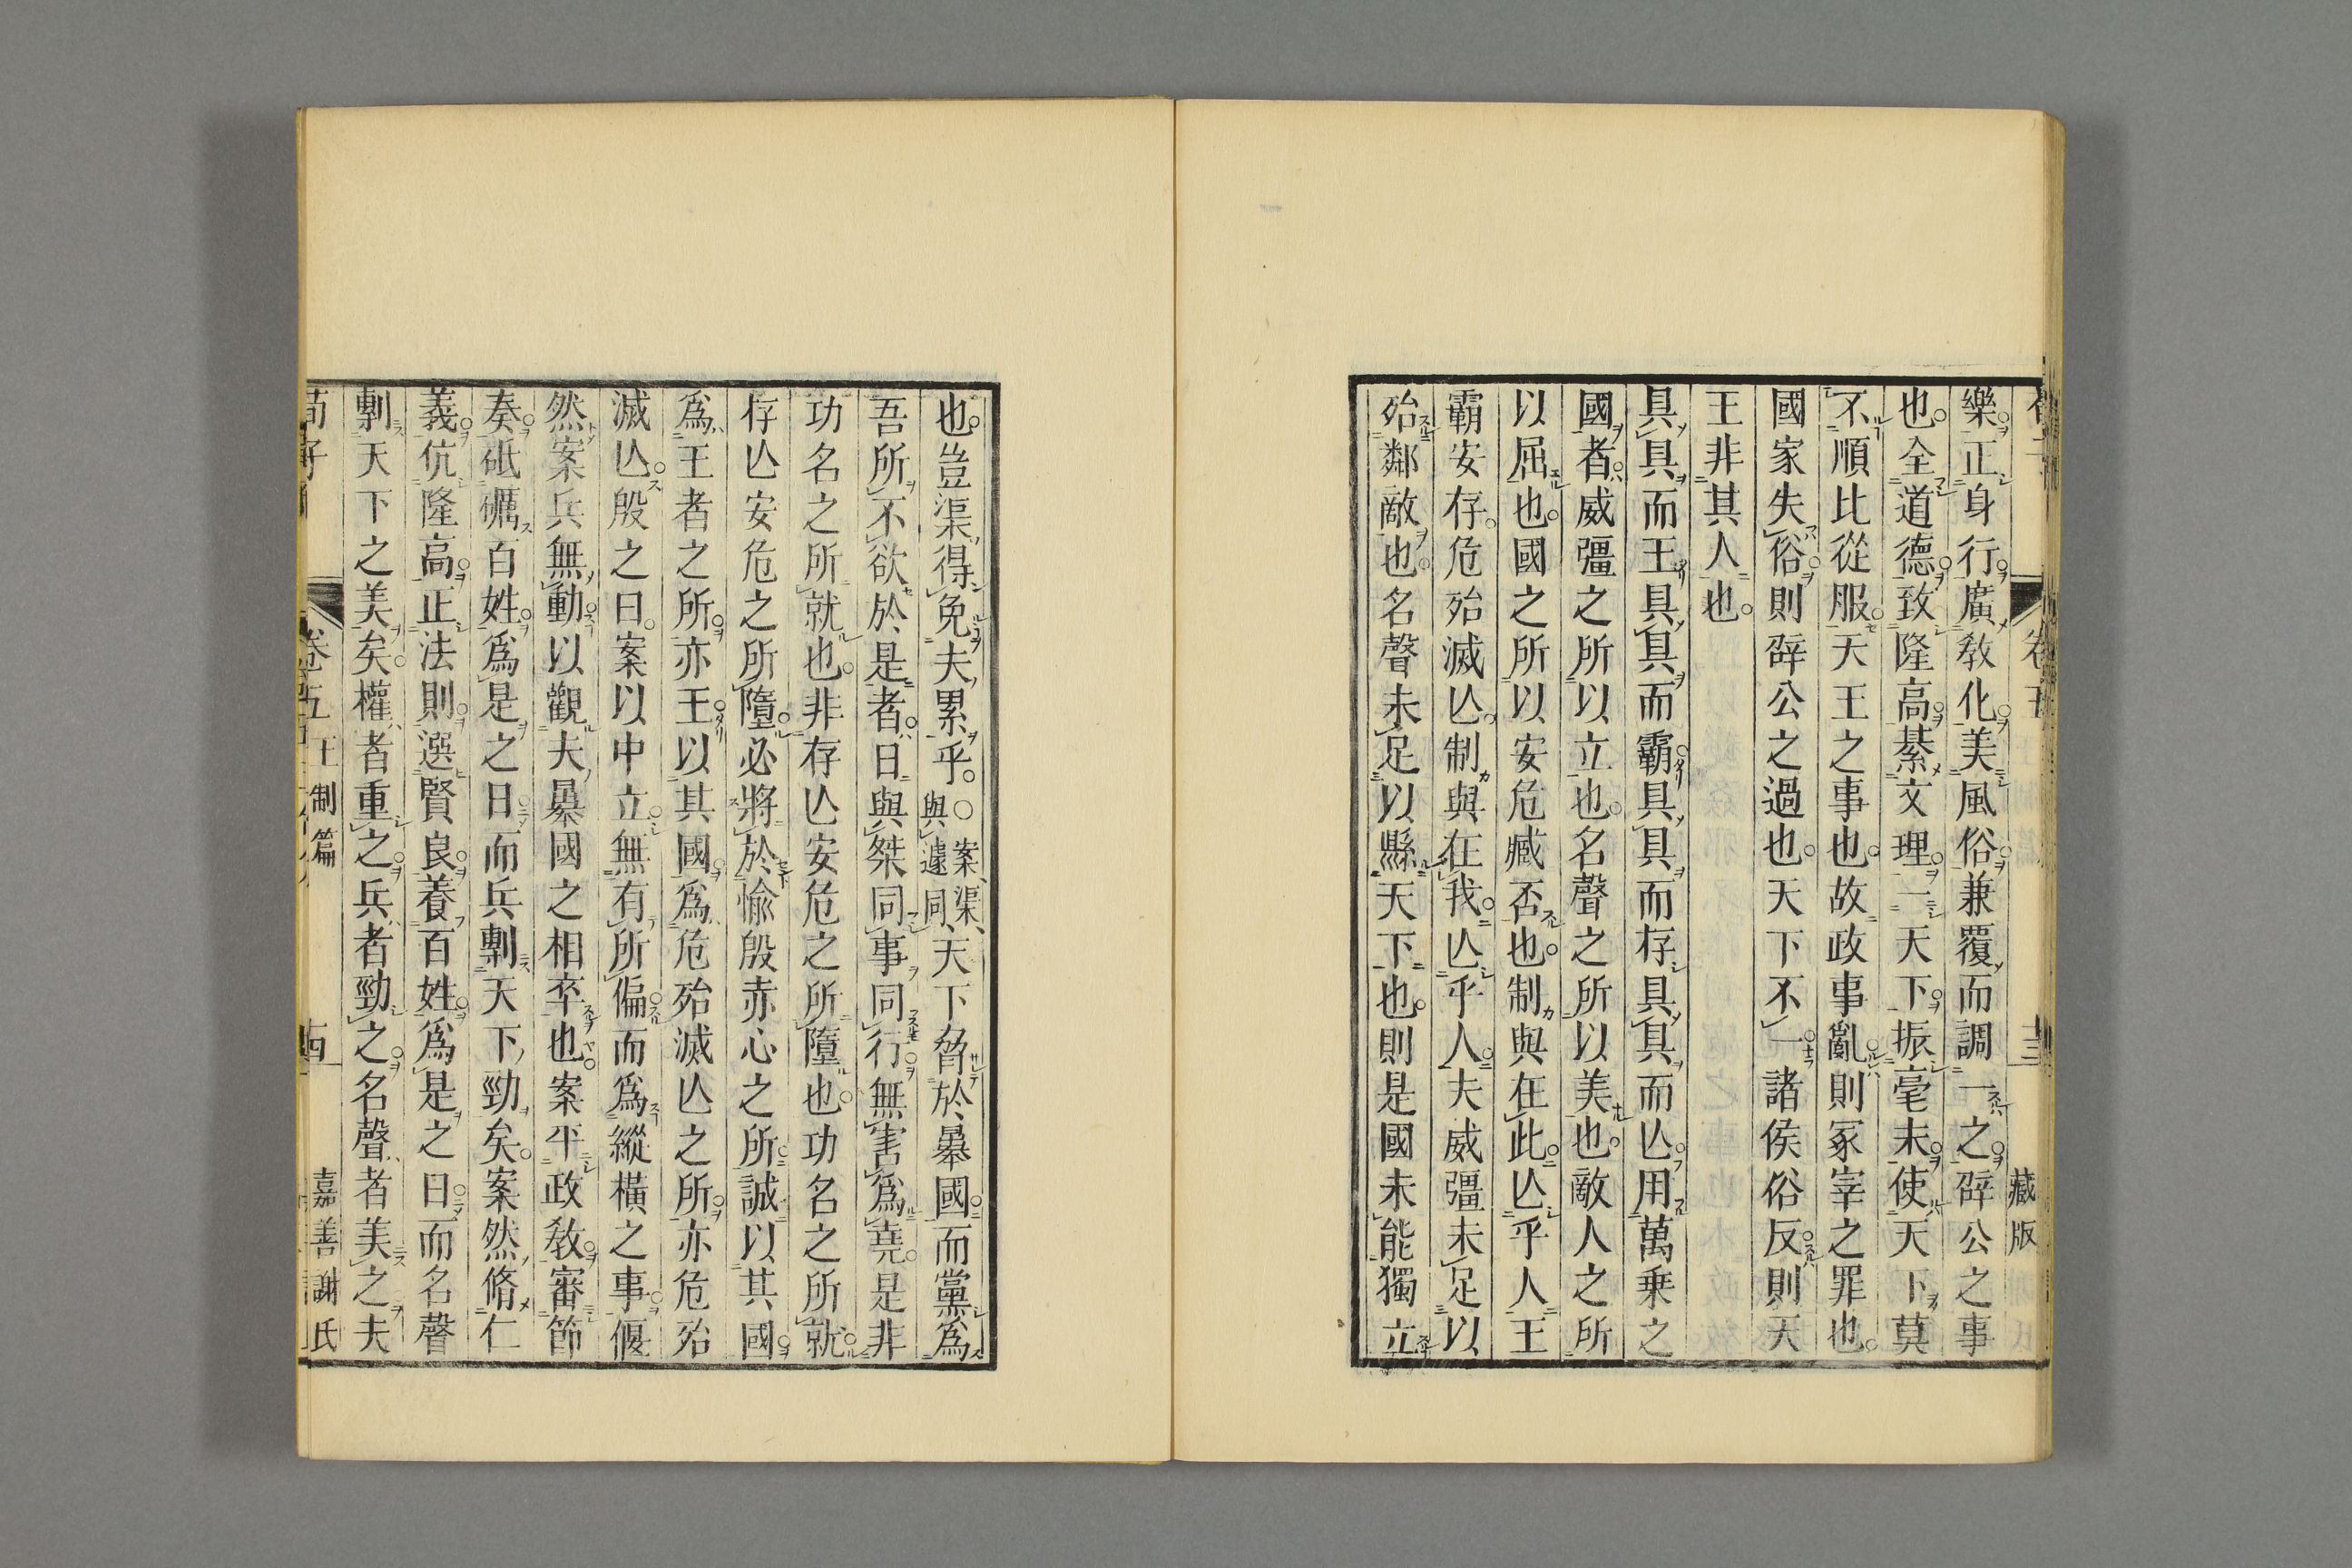 樂正身行廣敎化美風俗兼覆而調一之辟公之事
也全道德致隆高綦文理一天下振毫末使天下莫
不順比從服天王之事也故政事亂則冢宰之罪也
國家失俗則辟公之過也天下不一諸侯俗反則天
王非其人也
具具而王具具而霸具具而存具具而亾用萬乗之
國者威彊之所以立也名聲之所以美也敵人之所
以屈也國之所以安危臧否也制與在此亾乎人王
霸安存危殆滅亾制與在我亾乎人夫威彊未足以
殆鄰敵也名聲未足以縣天下也則是國未能獨立
藏版
也豈渠得免夫累乎○案渠與遽同天下脅於暴國而黨爲
吾所不欲於是者日與桀同事同行無害爲堯是非
功名之所就也非存亾安危之所墮也功名之所就
存亾安危之所墮必將於愉殷赤心之所誠以其國
爲王者之所亦王以其國爲危殆滅亾之所亦危殆
滅亾殷之日案以中立無有所偏而爲縱橫之事偃
然案兵無動以觀夫暴國之相卒也案平政敎審節
奏砥礪百姓爲是之日而兵剸天下勁矣案然脩仁
義伉隆高正法則選賢良養百姓爲是之日而名聲
剸天下之美矣權者重之兵者勁之名聲者美之夫
荀子 卷五 王制篇 十四 嘉善謝氏